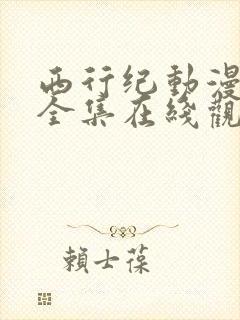 西行纪動漫
全集在线觀
賴士葆